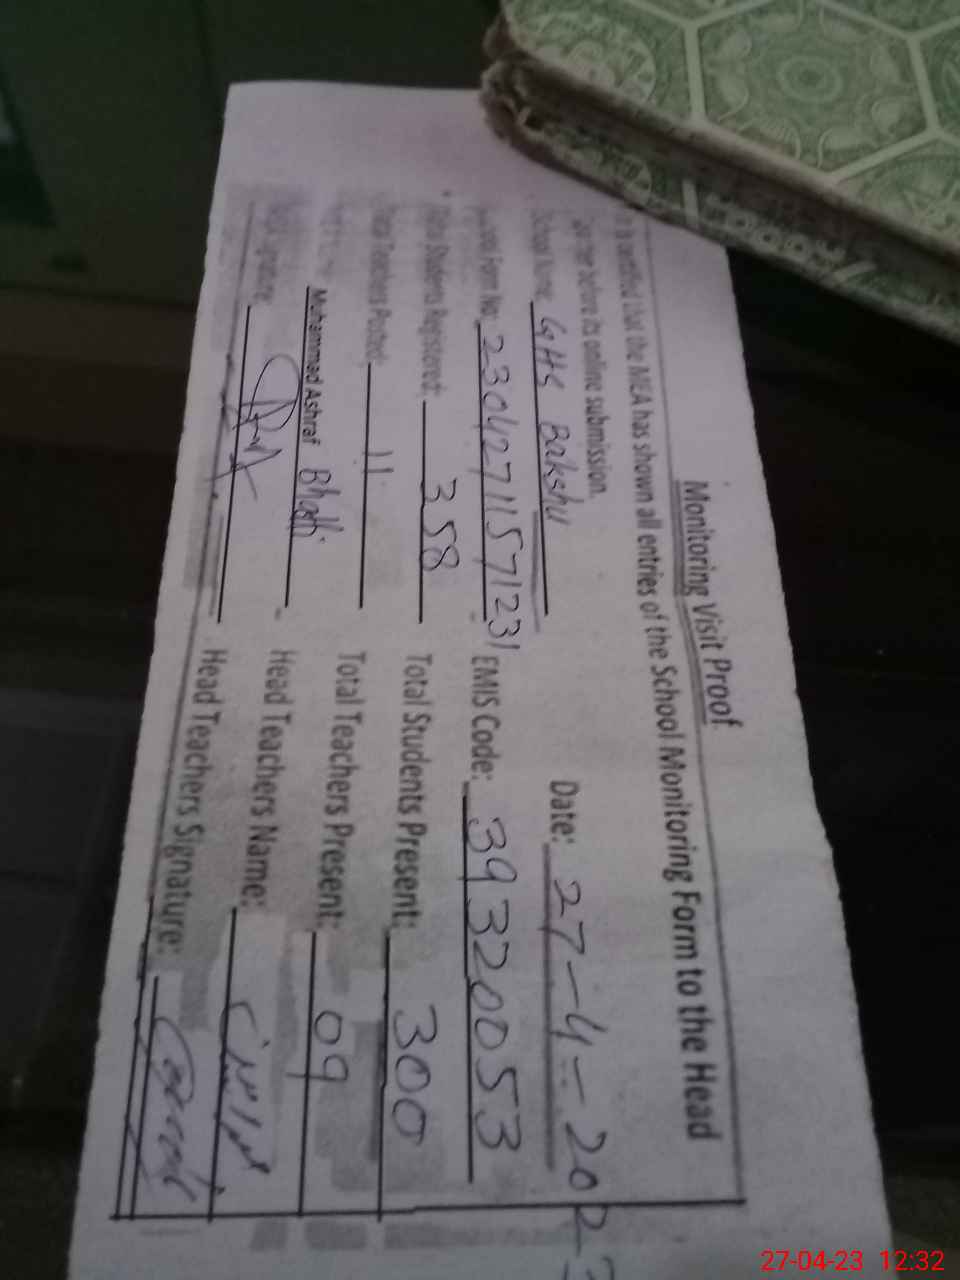 Monitoring Visit Proof
It is certified that the MEA has shown all entries of the School Monitoring Form to the Head
before its online submission.
School Name: GHS Bakshu Date: 27-4-2023
Form No: 23042711571231 EMIS Code: 39320053
Total Students Registered: 358 Total Students Present: 300
Total Teachers Posted: 11 Total Teachers Present: 09
Muhammad Ashraf Bhatti Head Teachers Name:
Signature: Head Teachers Signature:
27-04-23 12:32